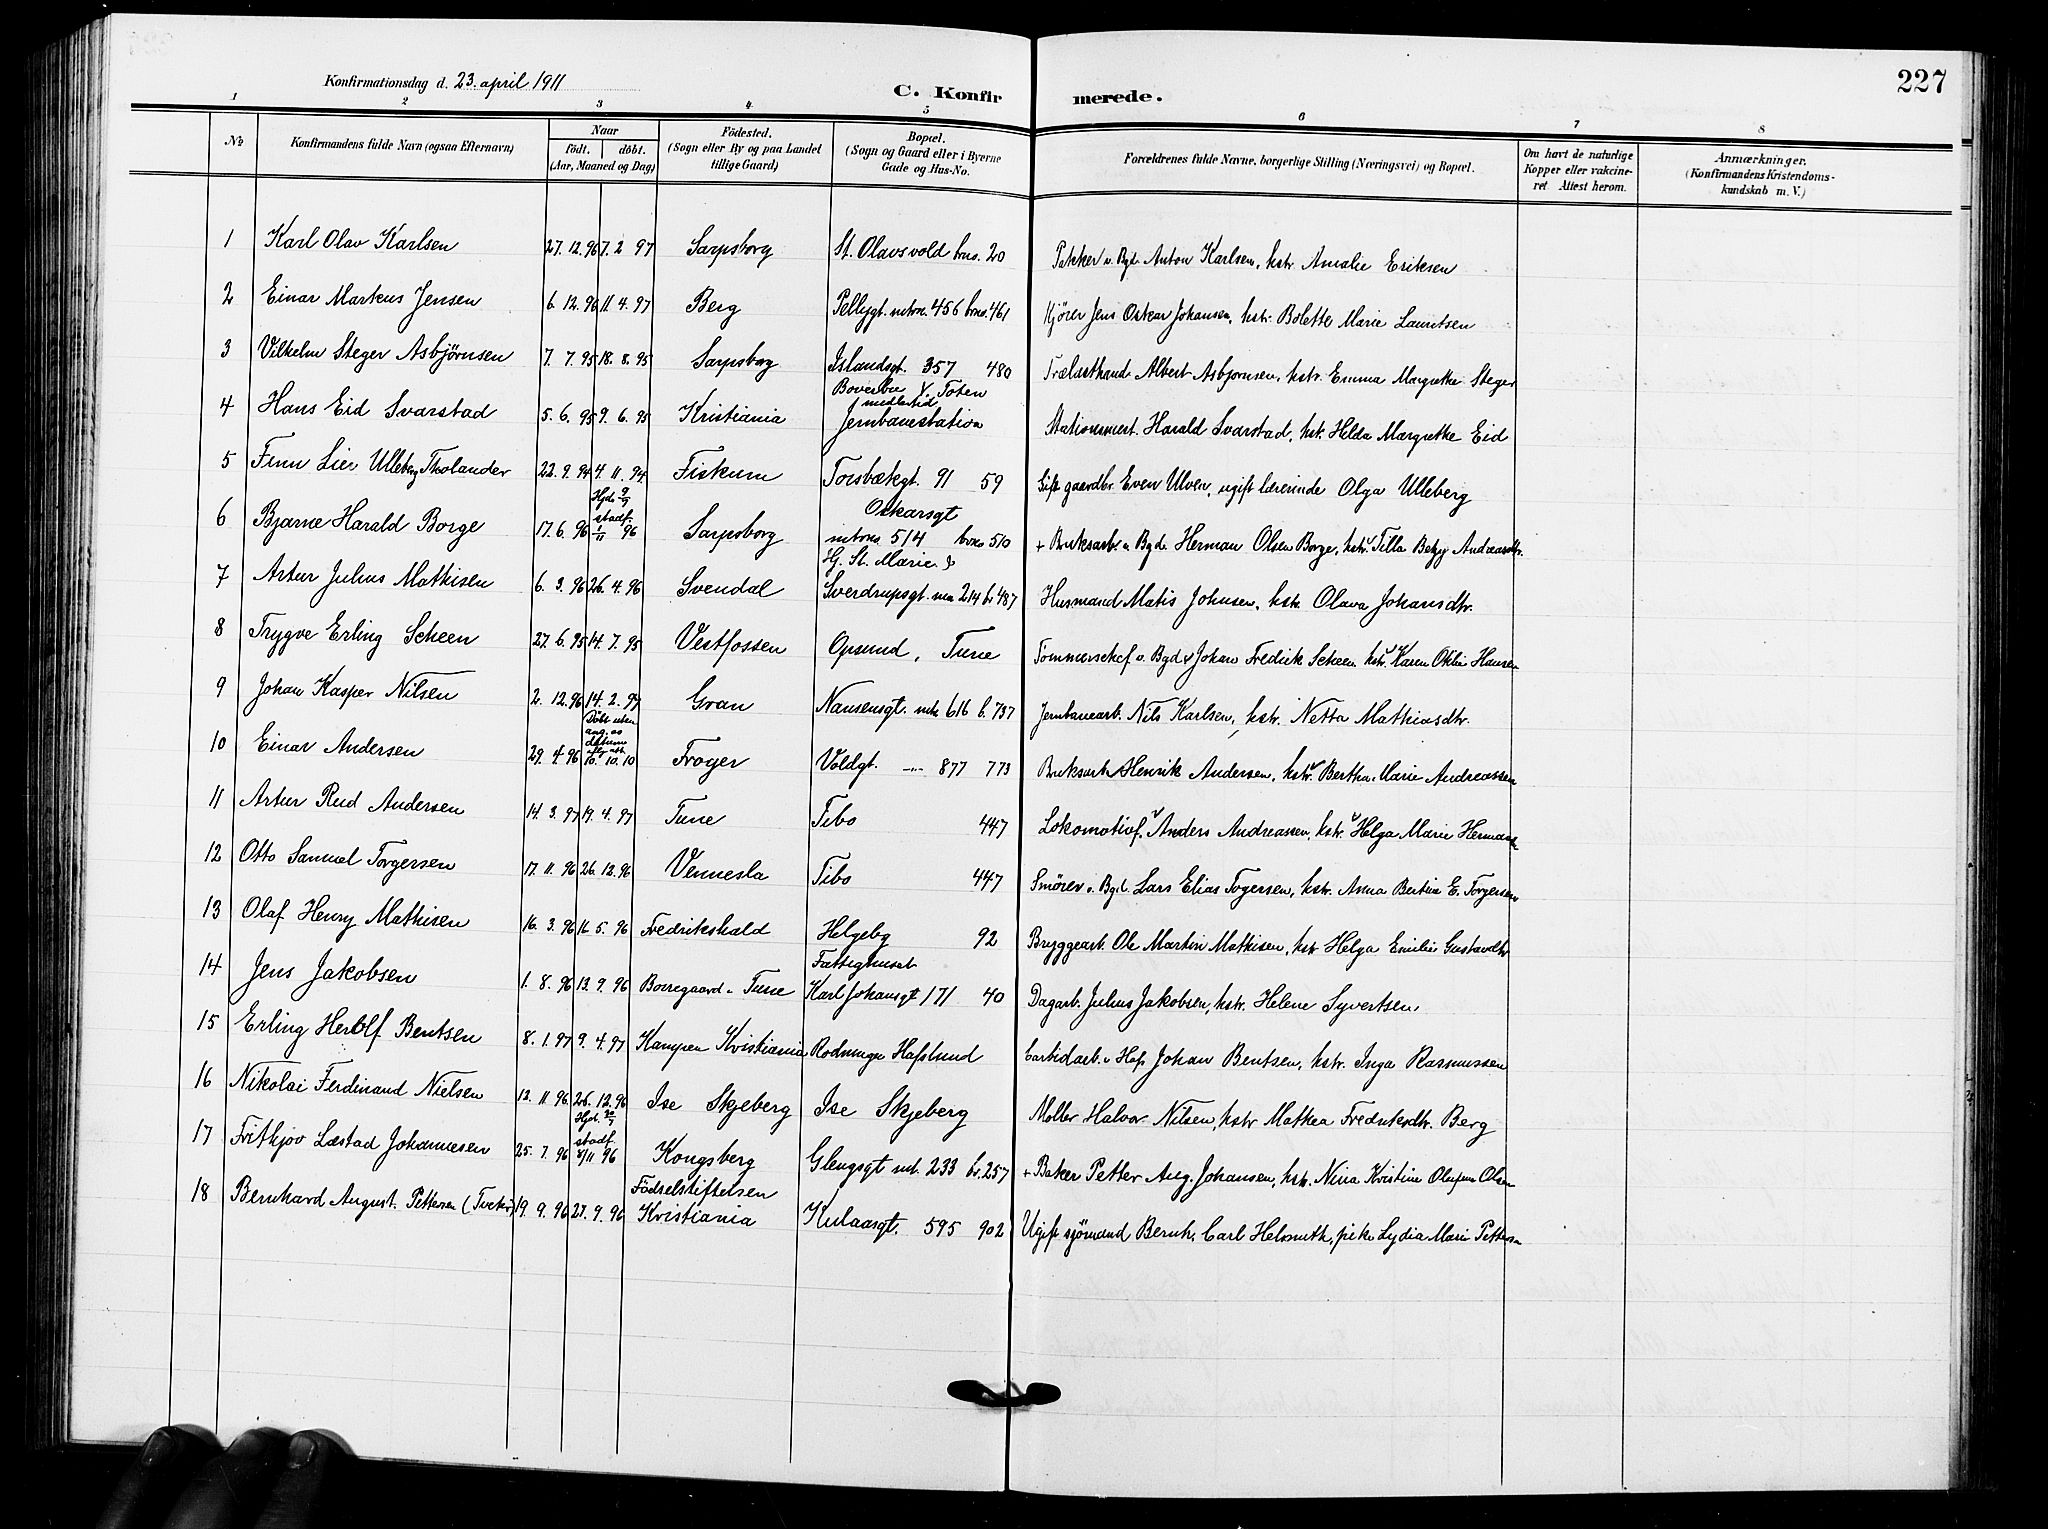 227
Konfirmationsdag d. 23. april 1911
C. Konfirmerede.
1 2 3 4 5 6 7 8
№ Konfirmandens fulde Navn (ogsaa Efternavn) Naar födt. döbt. (Aar, Maaned og Dag) Födested. (Sogn eller By og paa Landet tillige Gaard) Bopæl. (Sogn og Gaard eller i Byerne Gade og Hus-No. Forældrenes fulde Navne, borgerlige Stilling (Næringsvei) og Bopæl. Om havt de naturlige Kopper eller vakcineret Attest herom. Anmærkninger. (Konfirmandens Kristendomskundskab m. V.)
1 Karl Olav Karlsen 27. 12. 96 7. 2 97 Sarpsborg St. Olavsvold brno. 20 Pakker v. Bgd. Anton Karlsen, hstr. Amalie Eriksen
2 Einar Markus Jensen 6. 12. 96 11. 4. 97 Berg Pellygt. mtrno. 456 brno. 461 Kjörer Jens Oskar Johansen, hstr. Bolette Marie Lauritsen
3 Vilhelm Steger Asbjørnsen 7. 7. 95 18. 8. 95 Sarpsborg Islandsgt. 357 480 Trælasthand. Albert Asbjørnsen, hstr. Emma Margrethe Steger
4 Hans Eid Svarstad 5. 6. 95 9. 6. 95 Kristiania V. Toten medlertid Jernbanestation Stationsmest. Harald Svarstad, hst. Helda Margrethe Eid
5 Finn Lier Ulleberg Tholander 22. 9. 94 4. 11. 94 Fiskum Torsbækgt. 91 59 Gift gaardbr. Even Ulven, ugift lærerinde Olga Ulleberg
6 Bjarne Harald Borge 17. 6. 96 Hjd. 9/9 stadf. 1/11 96 Sarpsborg Oskarsgt mtrno. 514 brno 510 + Bruksarb. v. Bgd. Herman Olsen Borge, hstr. Tilla Betzy Andreasdtr.
7 Artur Julius Mathisen 6. 3. 96 26. 4. 96 Svendal Hj. St. Marie & Sverdrupsgt. mn 214 b. 487 Husmand Matis Johnsen, hstr. Olava Johansdtr.
8 Trygve Erling Scheen 27. 6. 95 14. 7. 95 Vestfossen Opsund, Tune Tommerschef v. Bgd. Johan Fredrik Scheen hstr. Karen Oktia Hansen
9 Johan Kasper Nilsen 2. 12. 96 14. 2. 97 Gran Nansensgt. mtr 616 b. 737 Jernbanearb. Nils Karlsen, hstr. Netta Mathiasdtr.
10 Einar Andersen 29. 4 96 Döbt uten ang. av datum 10. 10. 10 Froger Voldgt. 877 773 Bruksarb. Henrik Andersen, hstr. Bertha Marie Andreassen
11 Artur Rud Andersen 14. 3. 97 19. 4. 97 Tune Tibo 447 Lokomotivf. Anders Andreassen, hstr. Helga Marie Hermans
12 Otto Samuel Torgersen 17. 11. 96 26. 12. 96 Vennesla Tibo 447 Smörer v. Bgd. Lars Elias Togersen, hstr. Anna Bertine E. Torgersen
13 Olaf Henry Mathisen 16. 3. 96 16 5. 96 Fredrikshald Helgeby 92 Bryggearb. Ole Martin Mathisen, hstr Helga Emilie Gustavdtr
14 Jens Jakobsen 1. 8. 96 13. 9. 96 Borregaard v. Tune Fattighuset Karl Johansgt 171 40 Dagarb. Julius Jakobsen, hstr. Helene Syvertsen,
15 Erling Herolf Bentsen 8. 1. 97 9. 4. 97 Kampen Kristiania Rodmungn Hafslund Carbidarb. v Hafs Johan Bentsen, hstr. Inga Rasmussen
16 Nikolai Ferdinand Nielsen 12. 11. 96. 26. 12. 96 Ise Skjeberg Ise Skjeberg Møller Halvor Nilsen, hstr Mathea Fredriksdtr. Berg
17 Frithjov Læstad Johannesen 25. 7. 96 Hjd. stadf. 8/11 96 Kongsberg Glengsgt mt. 233 br. 257 + Baker Petter Aug. Johansen, hstr. Nina Kristine Olufine Olsen
18 Bernhard August Pettersen 19. 9. 96 27. 9. 96 Födselstiftelsen Kristiania Kulaasgt. 595 902 Ugift sjømand Bernh. Carl Helmuth, pike Lydia Marie Pettersen